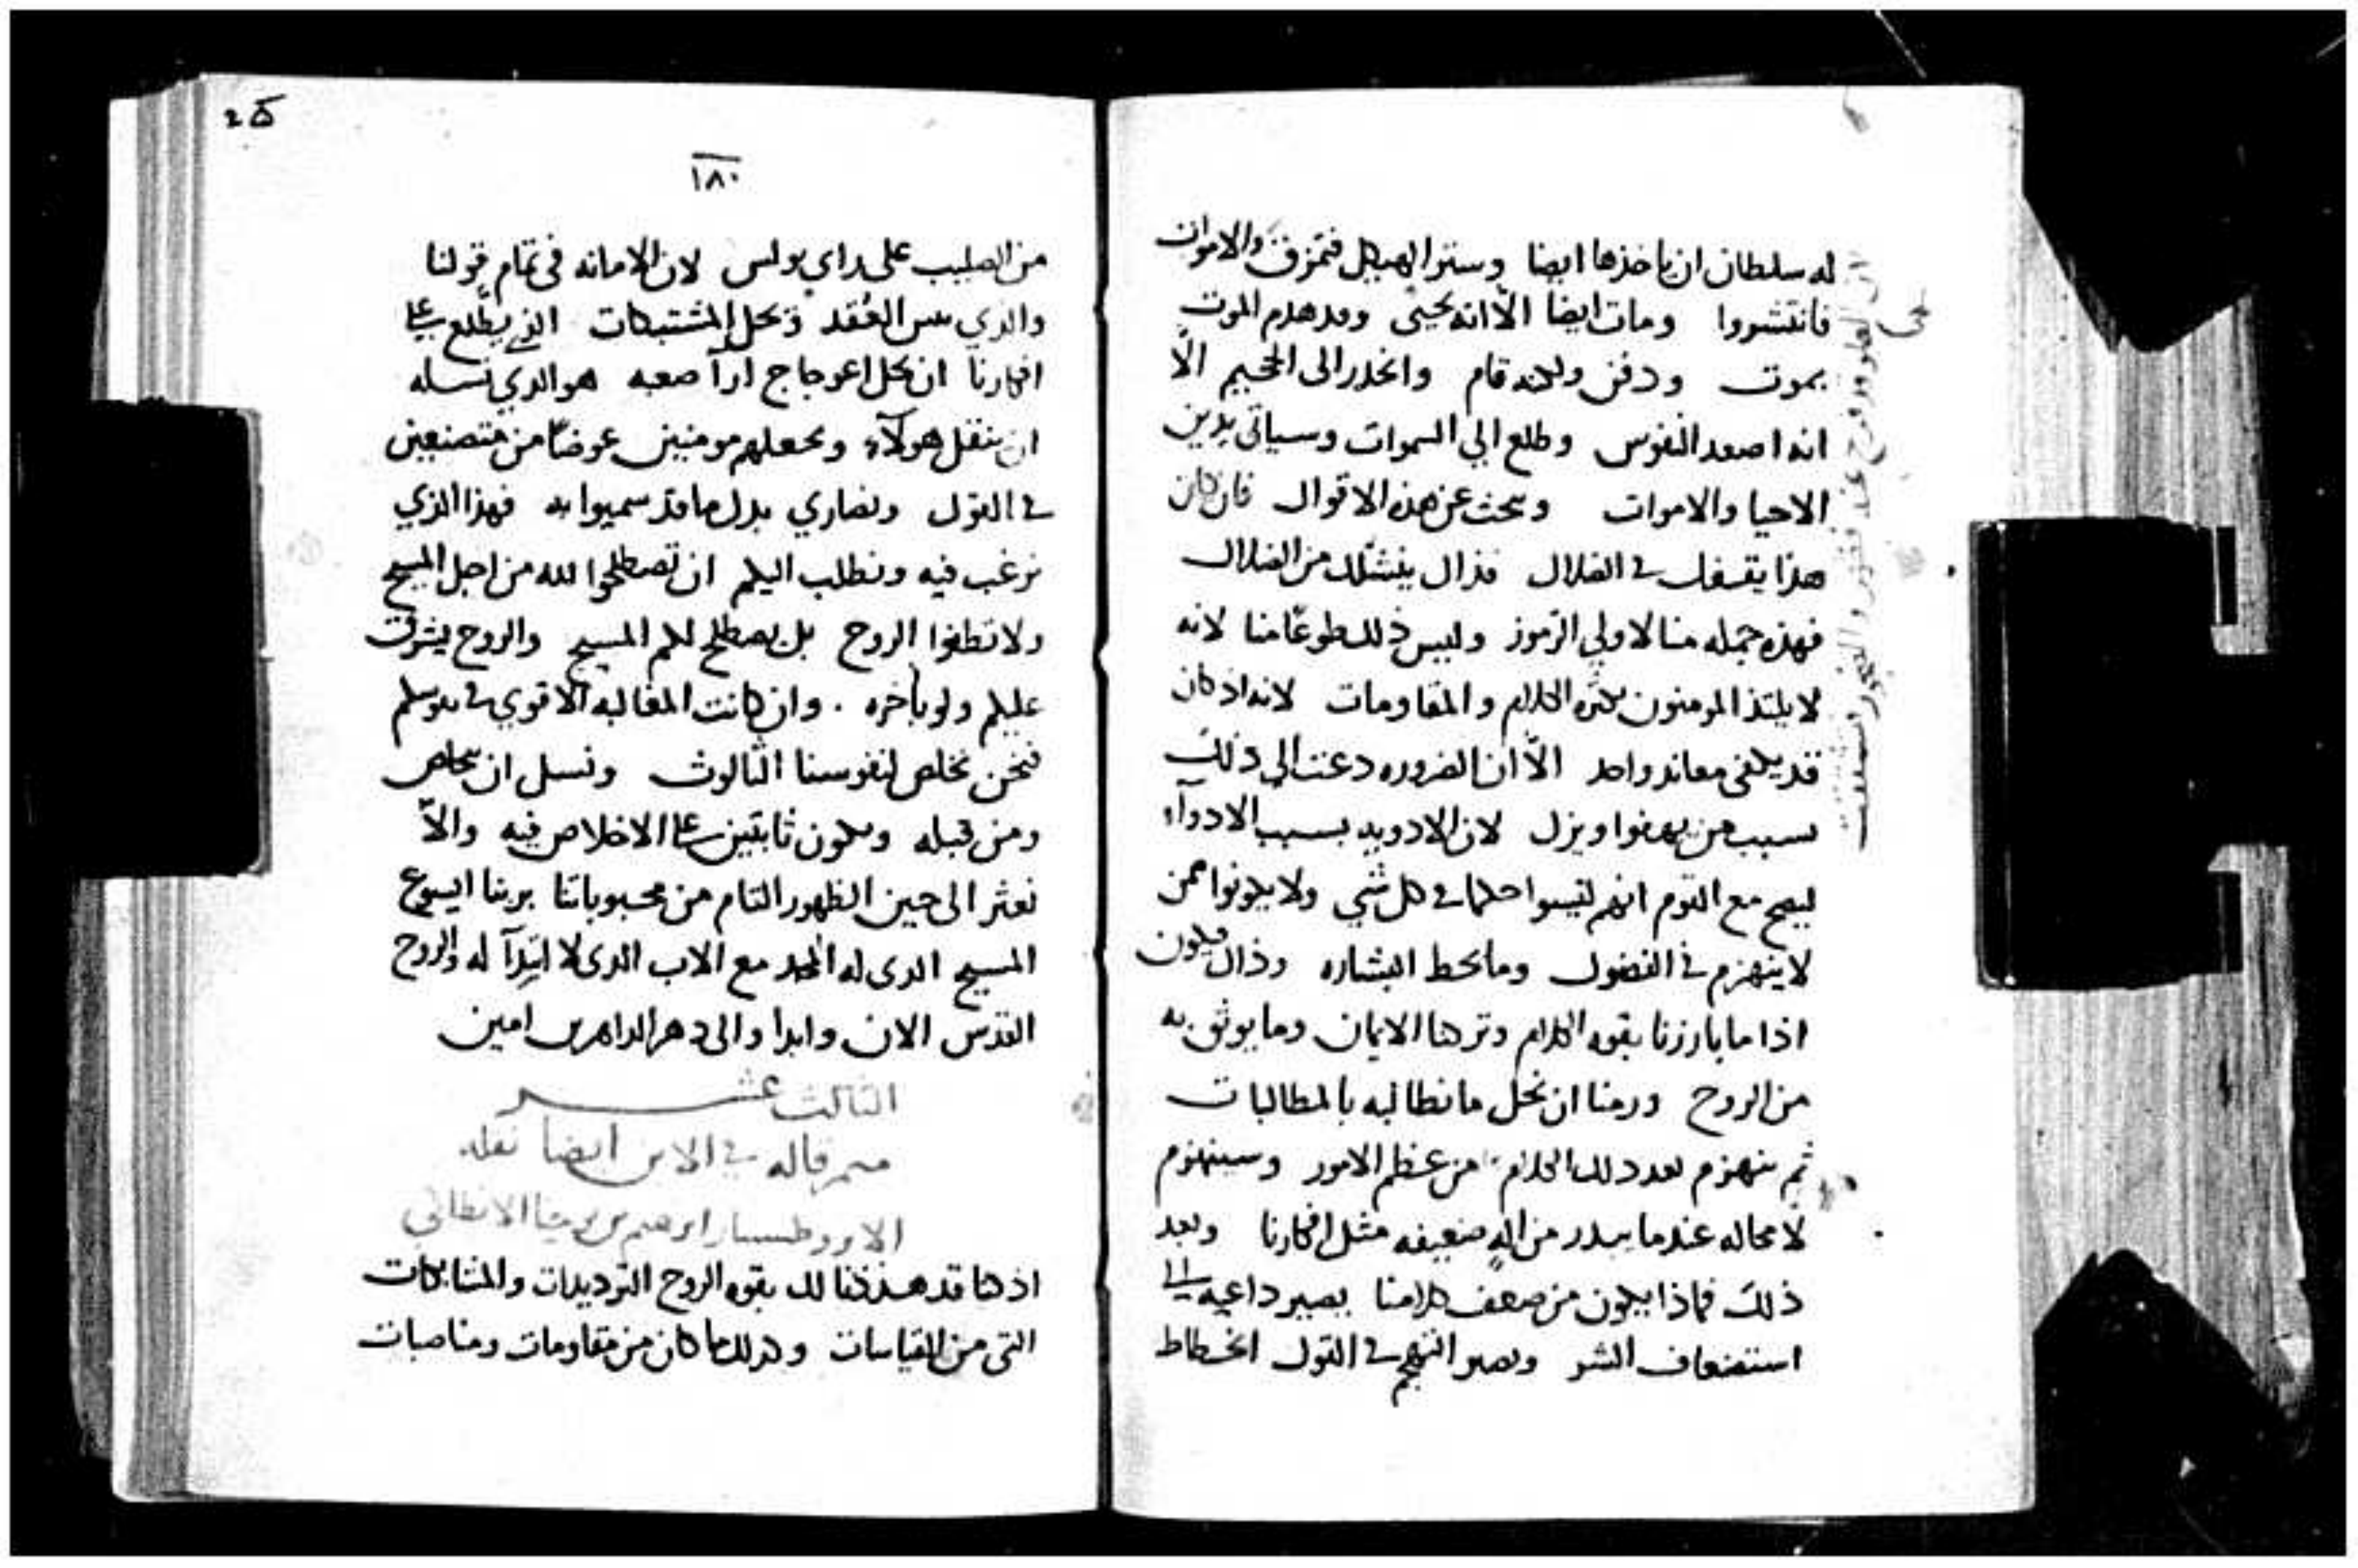 له سلطان ان ياخذها ايضا وستر الهيكل فتمزق والاموات
فانتشروا ومات ايضا الّا انه يحيى وهدم الموت
بموت ودفن ولكنه قام وانحدر الى الجحيم الّا
انه اصعد النفوس وطلع الي السموات وسياتي يدين
الاحيا والاموات وبحث عن هذه الاقوال فان كان
هذا في الضلال فذاك ينشلك من الضلال
فهذه جمله منا لاولي الرموز وليس ذلك طوعًا منا لانه
لا يلتذ المومنون بكثره الكلام والمقاومات لانه اذ كان
قد يكفي معاند واحد الّا ان الضروره دعت الي ذلك
بسبب من لان الادويه بسبب الادوآء
ليصح مع القوم انهم ليسوا حكما في كل شي ولا يكونوا ممن
لا ينهزم في الفضول وما يحط البشاره وذاك يكون
اذا ما بارزنا بقوه الكلام وتركنا الايمان وما يوثق به
من الروح ورمنا ان نحل ما نطالبه بالمطالبات
ثم ينهزم بعد ذلك الكلام من عظم الامور وسينهزم
لا محاله عندما يبدر من اله ضعيفه مثل افكارنا وبعد
ذلك فماذا يكون من ضعف كلامنا يصير داعيه الي
استضعاف السر ويصير النهج في القول انحطاط
١٨٠
من الصليب على راي بولس لان الامانه في تمام قولنا
والذي العُقد ويحل المشتبكات الذي يطّلع على
افكارنا ان يحل اعوجاج ارآ صعبه هو الذي نسله
ان ينقل هولآء ويجعلهم مومنين عوضًا من متصنعين
في القول ونصاري بدل ما قد سميوا به فهذا الذي
نرغب فيه ونطلب اليكم ان تصطلحوا لله من اجل المسيح
ولا تطفوا الروح بل يصطلح لكم المسيح والروح يشرق
عليكم ولو بأخره . وان كانت المغالبه الاقوي
فنحن نخلص لنفوسنا الثالوث ونسل ان نخلص
ومن قبله ونكون ثابتين على الاخلاص فيه والّا
نعثر الى حين الظهور التام من محبوباتنا بربنا ايسوع
المسيح الذى له المجد مع الاب الذى لا ابتدآ له والروح
القدس الان وابدا والى دهر الداهرين امين
الثالث عشر
ميمر قاله في الابن ايضا نقله
ابرهيم بن يوحنا الانطاكي
اذ كنا قد لك بقوه الروح التوديكات والمشابكات
التى من القياسات وكذلك ما كان من مقاومات ومناصبات